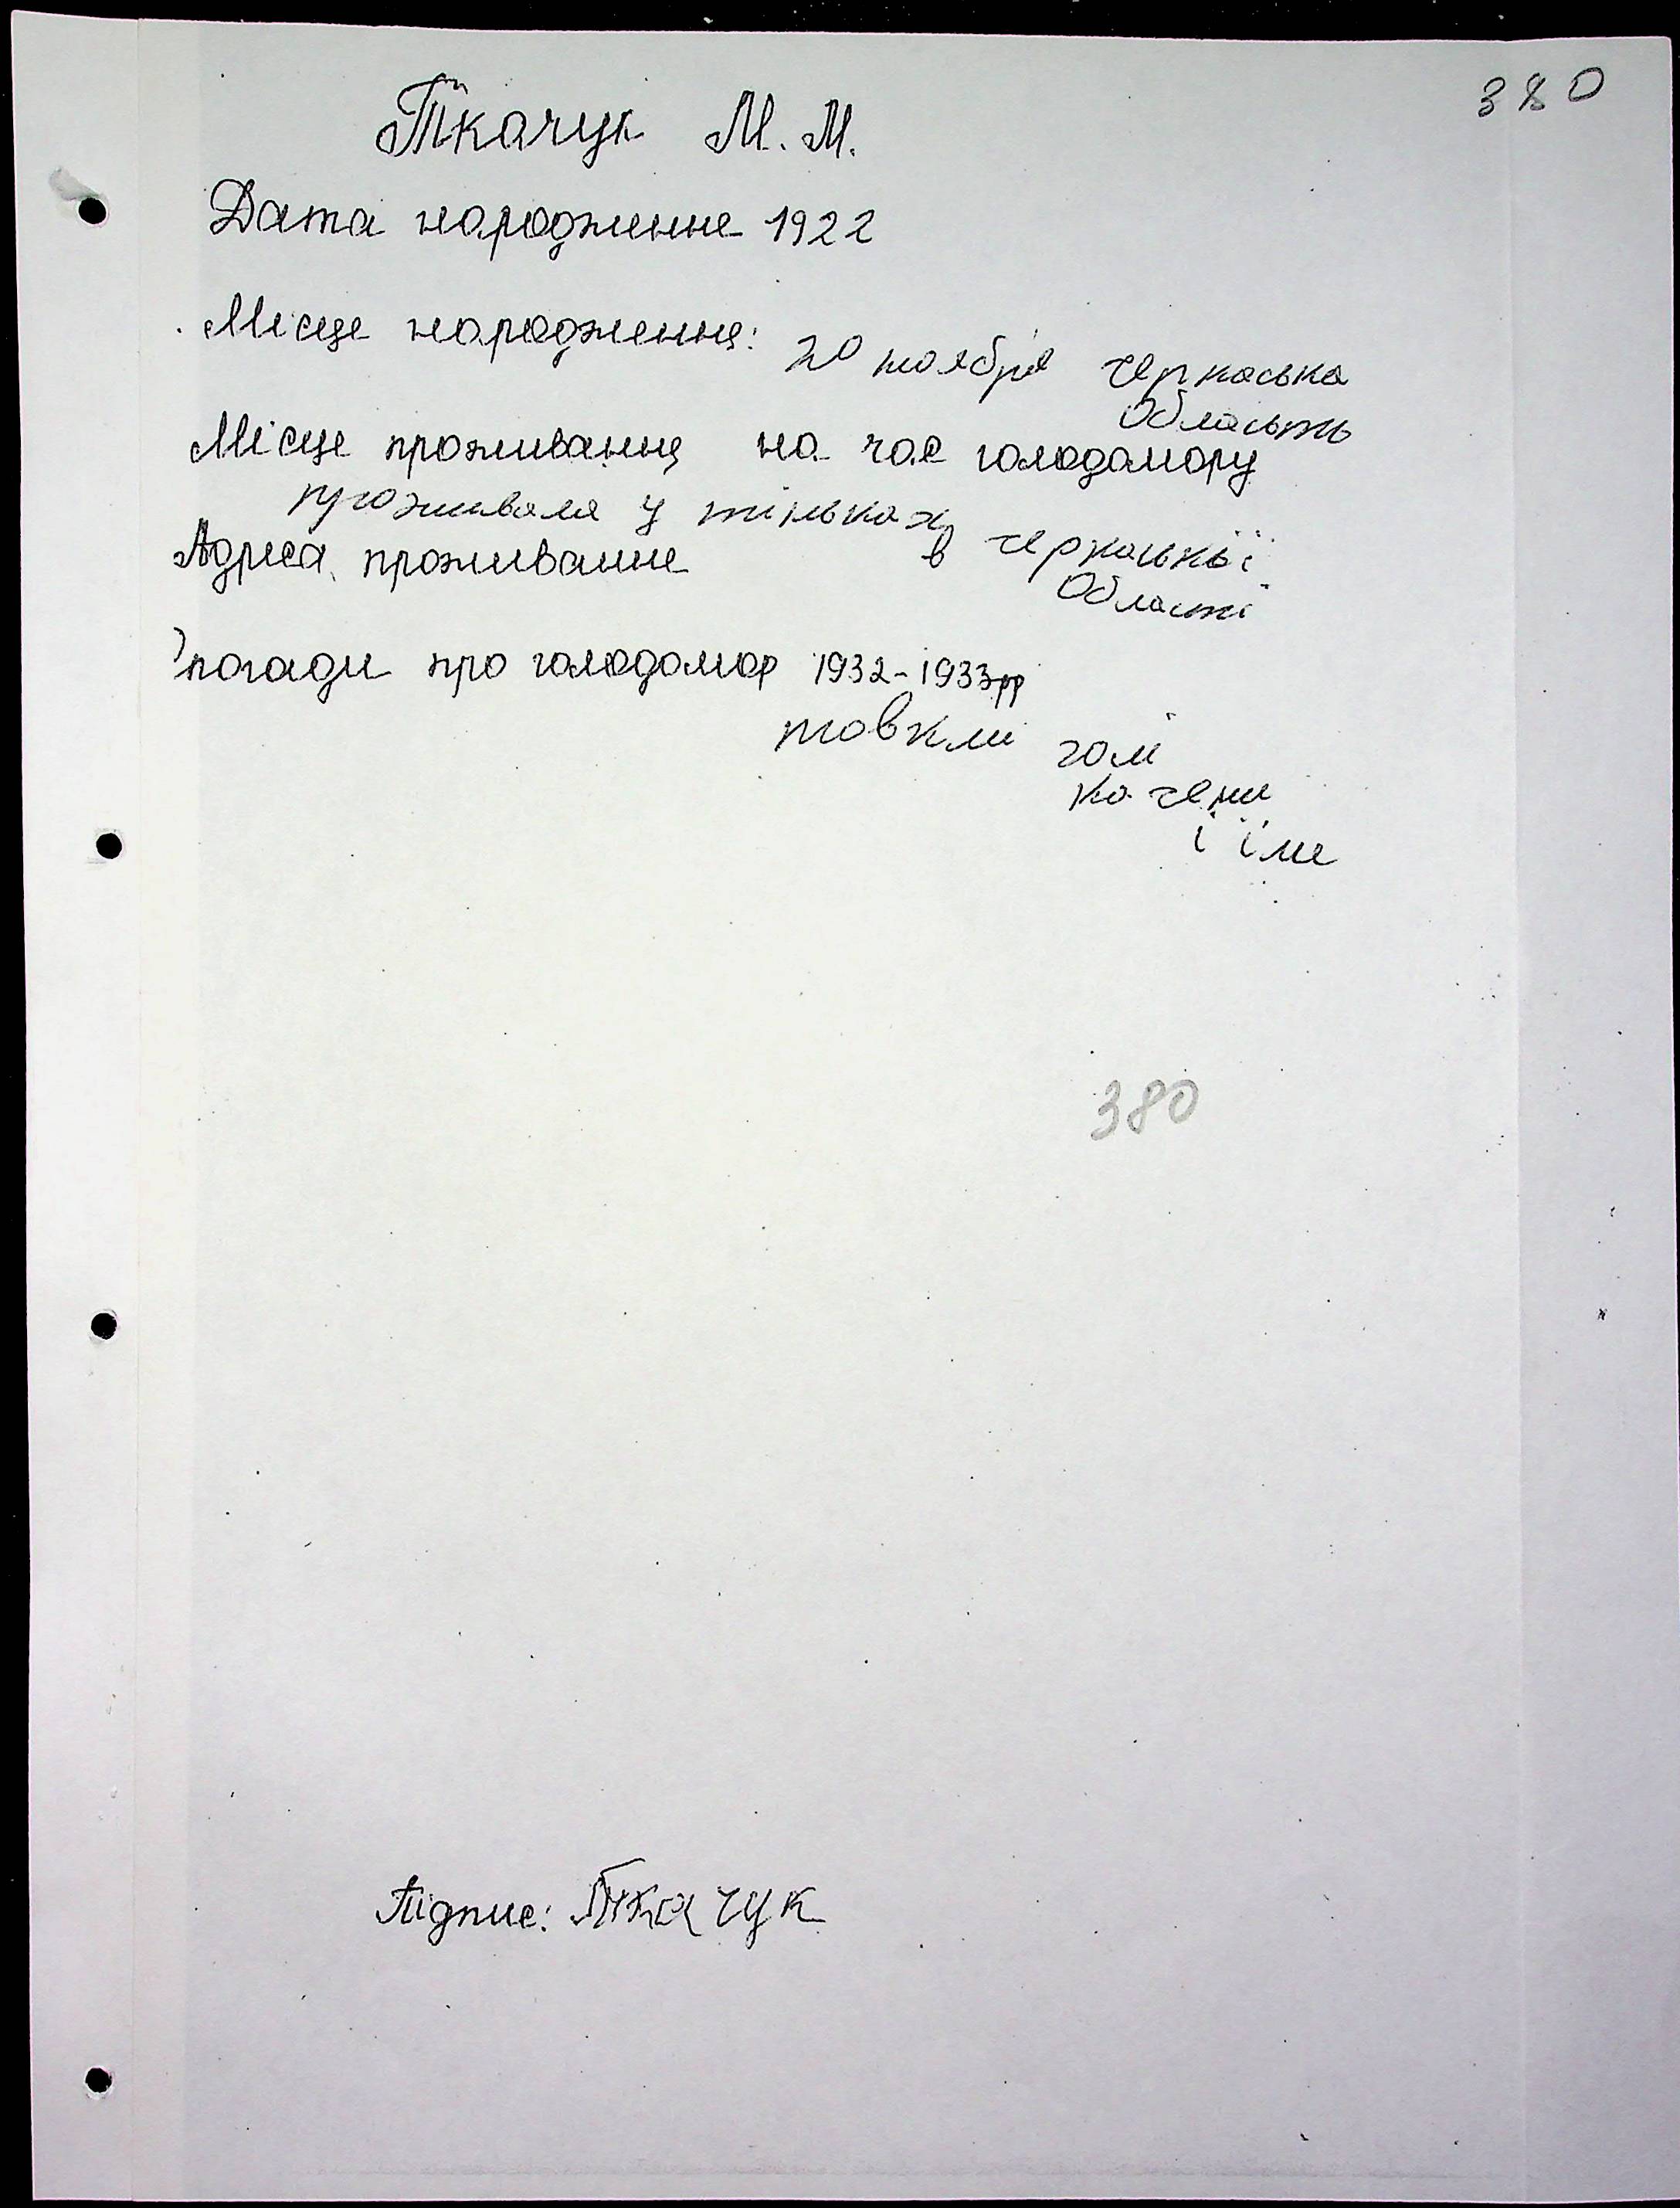 380
Ткачук М. М.
Дата народження 1922
Місце народження: 20 ноября черкаська
область
Місце проживання на час голодомору
проживала у тільках
в черкаській
області
Адреса проживання
Спогади про голодомор 1932-1933рр
товкли
качени
і їли
380
Підпис: Ткачук